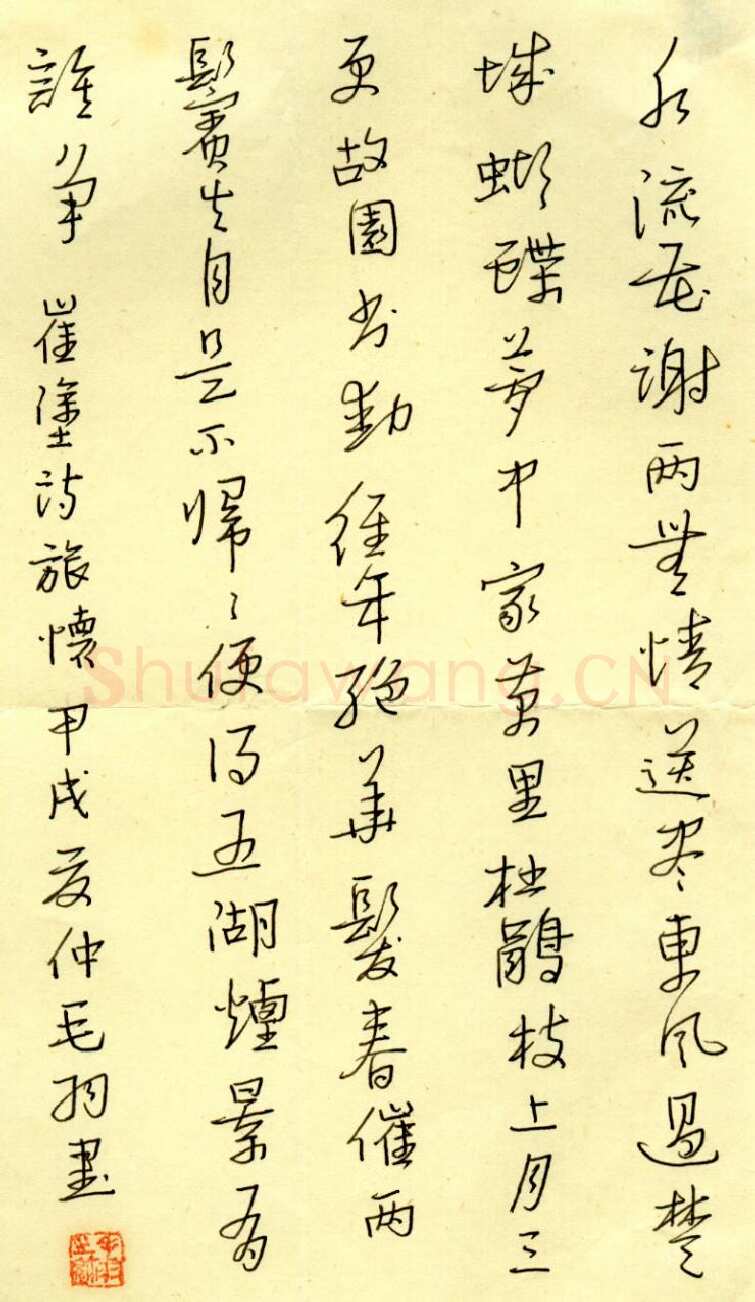 水流花謝两無情送盡東風過楚
城蝴蝶夢中家萬里杜鵑枝上月三
更故園書動經年絕華髮春催两
鬢生自是不歸々便得五湖煙景有
誰爭 崔塗詩旅懷甲戌夏仲毛羽書
Shufawang.CN